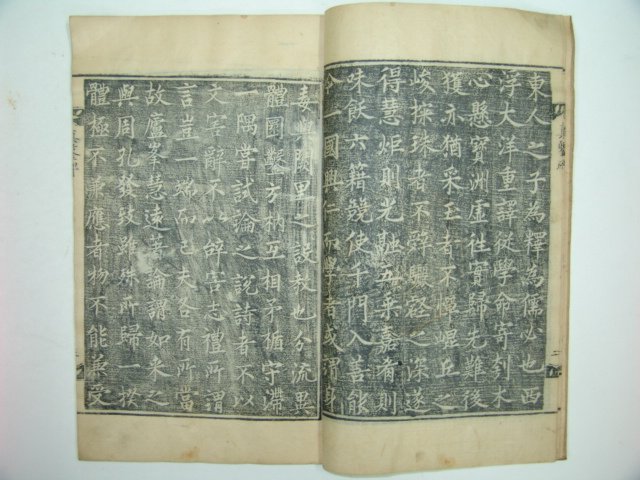 東人之子為釋為儒必也西
浮大洋重譯從學命寄刳木
心懸寶洲虛往實歸先難後
獲亦猶采玉者不憚崐丘之
峻探珠者不辭驪壑之深遂
得慧炬則光融五乘嘉肴則
味飫六籍競使千門入善能
令一國興仁而學者或謂身
毒與闕里之說教也分流異
體圜鑿方枘互相矛楯守滯
一隅嘗試論之說詩者不以
文害辭不以辭害志禮所謂
言豈一端而已夫各有所當
故廬峯慧遠著論謂如來之
與周孔發致雖殊所歸一揆
體極不兼應者物不能兼受